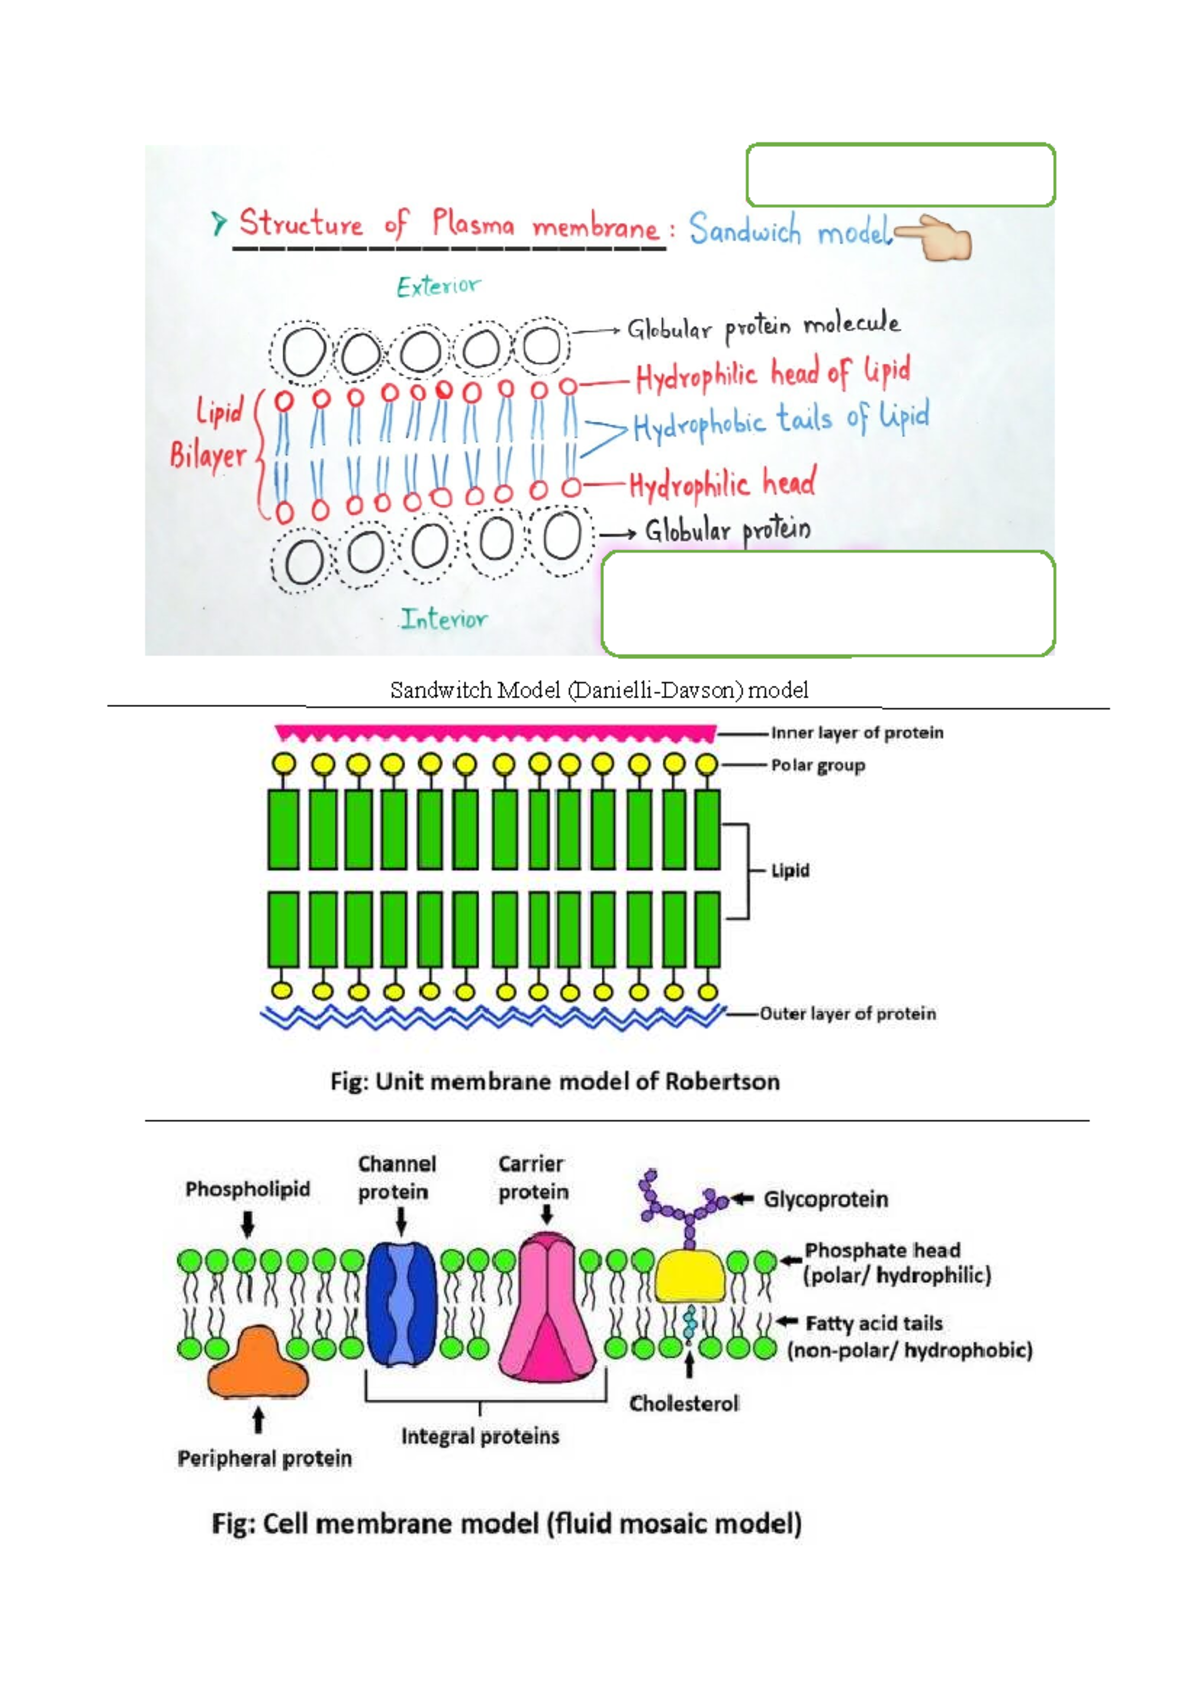 Structure of Plasma membrane: Sandwich model
Exterior
Globular protein molecule
Hydrophilic head of lipid
Lipid
Bilayer
Hydrophobic tails of lipid
Hydrophilic head
Globular protein
Interior
Sandwitch Model (Danielli-Davson) model
Inner layer of protein
Polar group
Lipid
Outer layer of protein
Fig: Unit membrane model of Robertson
Phospholipid
Channel
protein
Carrier
protein
Glycoprotein
Phosphate head
(polar/ hydrophilic)
Fatty acid tails
(non-polar/ hydrophobic)
Cholesterol
Integral proteins
Peripheral protein
Fig: Cell membrane model (fluid mosaic model)